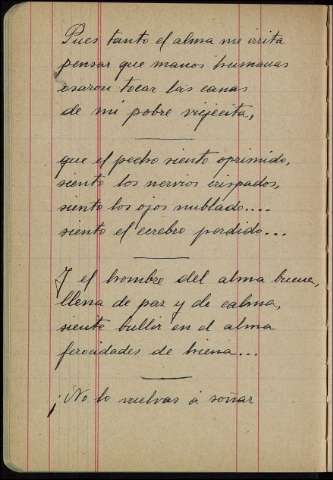 Pues tanto el alma me irrita
pensar que manos humanas
osaron tocar las canas
de mi pobre viejecita,
que el pecho siento oprimido,
siento los nervios crispados,
siento los ojos nublado....
siento el cerebro perdido...
Y el hombre del alma buena,
llena de paz y de calma,
siente bullir en el alma
ferocidades de hiena...
¡No lo vuelvas á soñar